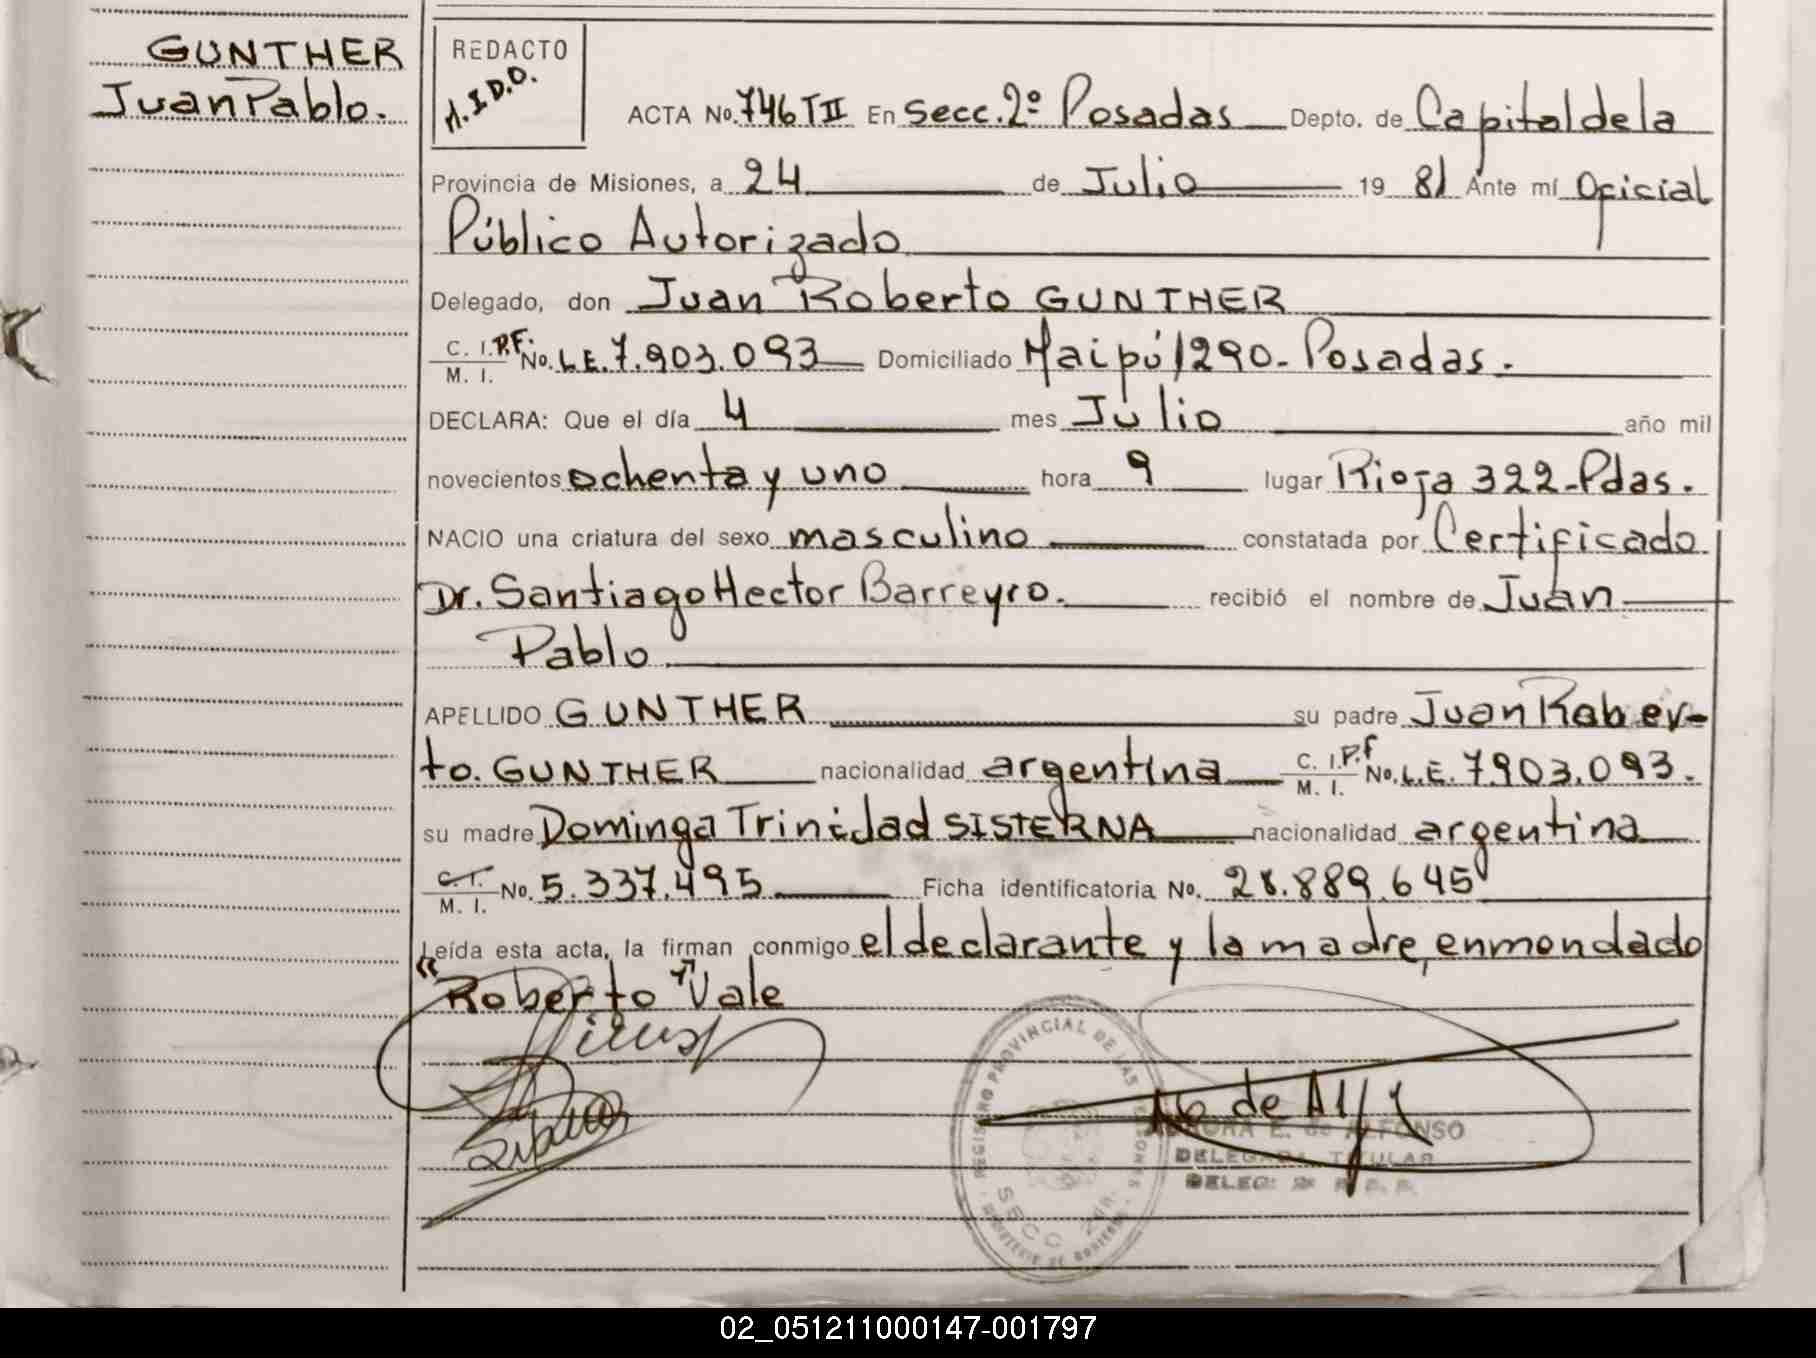 GUNTHER
Juan Pablo.
REDACTO
M.I.D.O.
ACTA No. 746 TII En Secc. 2º Posadas Depto. de Capital de la
Provincia de Misiones, a 24 de Julio 19 81 Ante mí Oficial
Público Autorizado
Delegado, don Juan Roberto GUNTHER
C. I. P.F. M. I. No. L.E. 7.903.093 Domiciliado Maipú 1290 - Posadas.
DECLARA: Que el día 4 mes Julio año mil
novecientos ochenta y uno hora 9 lugar Rioja 322 - Pdas.
NACIO una criatura del sexo masculino constatada por Certificado
Dr. Santiago Hector Barreyro. recibió el nombre de Juan
Pablo
APELLIDO GUNTHER su padre Juan Rober-
to. GUNTHER nacionalidad argentina C. I. P.F M. I. No. L.E. 7.903.093.
su madre Dominga Trinidad SISTERNA nacionalidad argentina
C. I. M. I. No. 5.337.495 Ficha identificatoria No. 28.889.645
Leída esta acta, la firman conmigo el declarante y la madre, enmendado
"Roberto" Vale
REGISTRO PROVINCIAL DE LAS PERSONAS
SECC. 2da.
MINISTERIO DE GOBIERNO
E. de ALFONSO
DELEGADA TITULAR
DELEG. 2ª R. P. P.
02_051211000147-001797